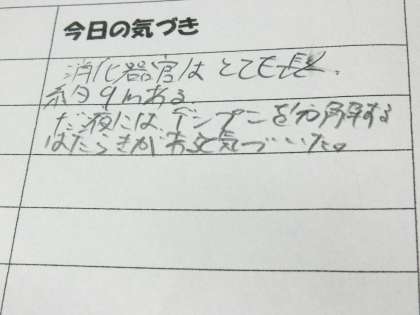 今日の気づき
消化器官はとても長く、
約9mある
だ液にはデンプンを分解する
はたらきがあると気づいた。